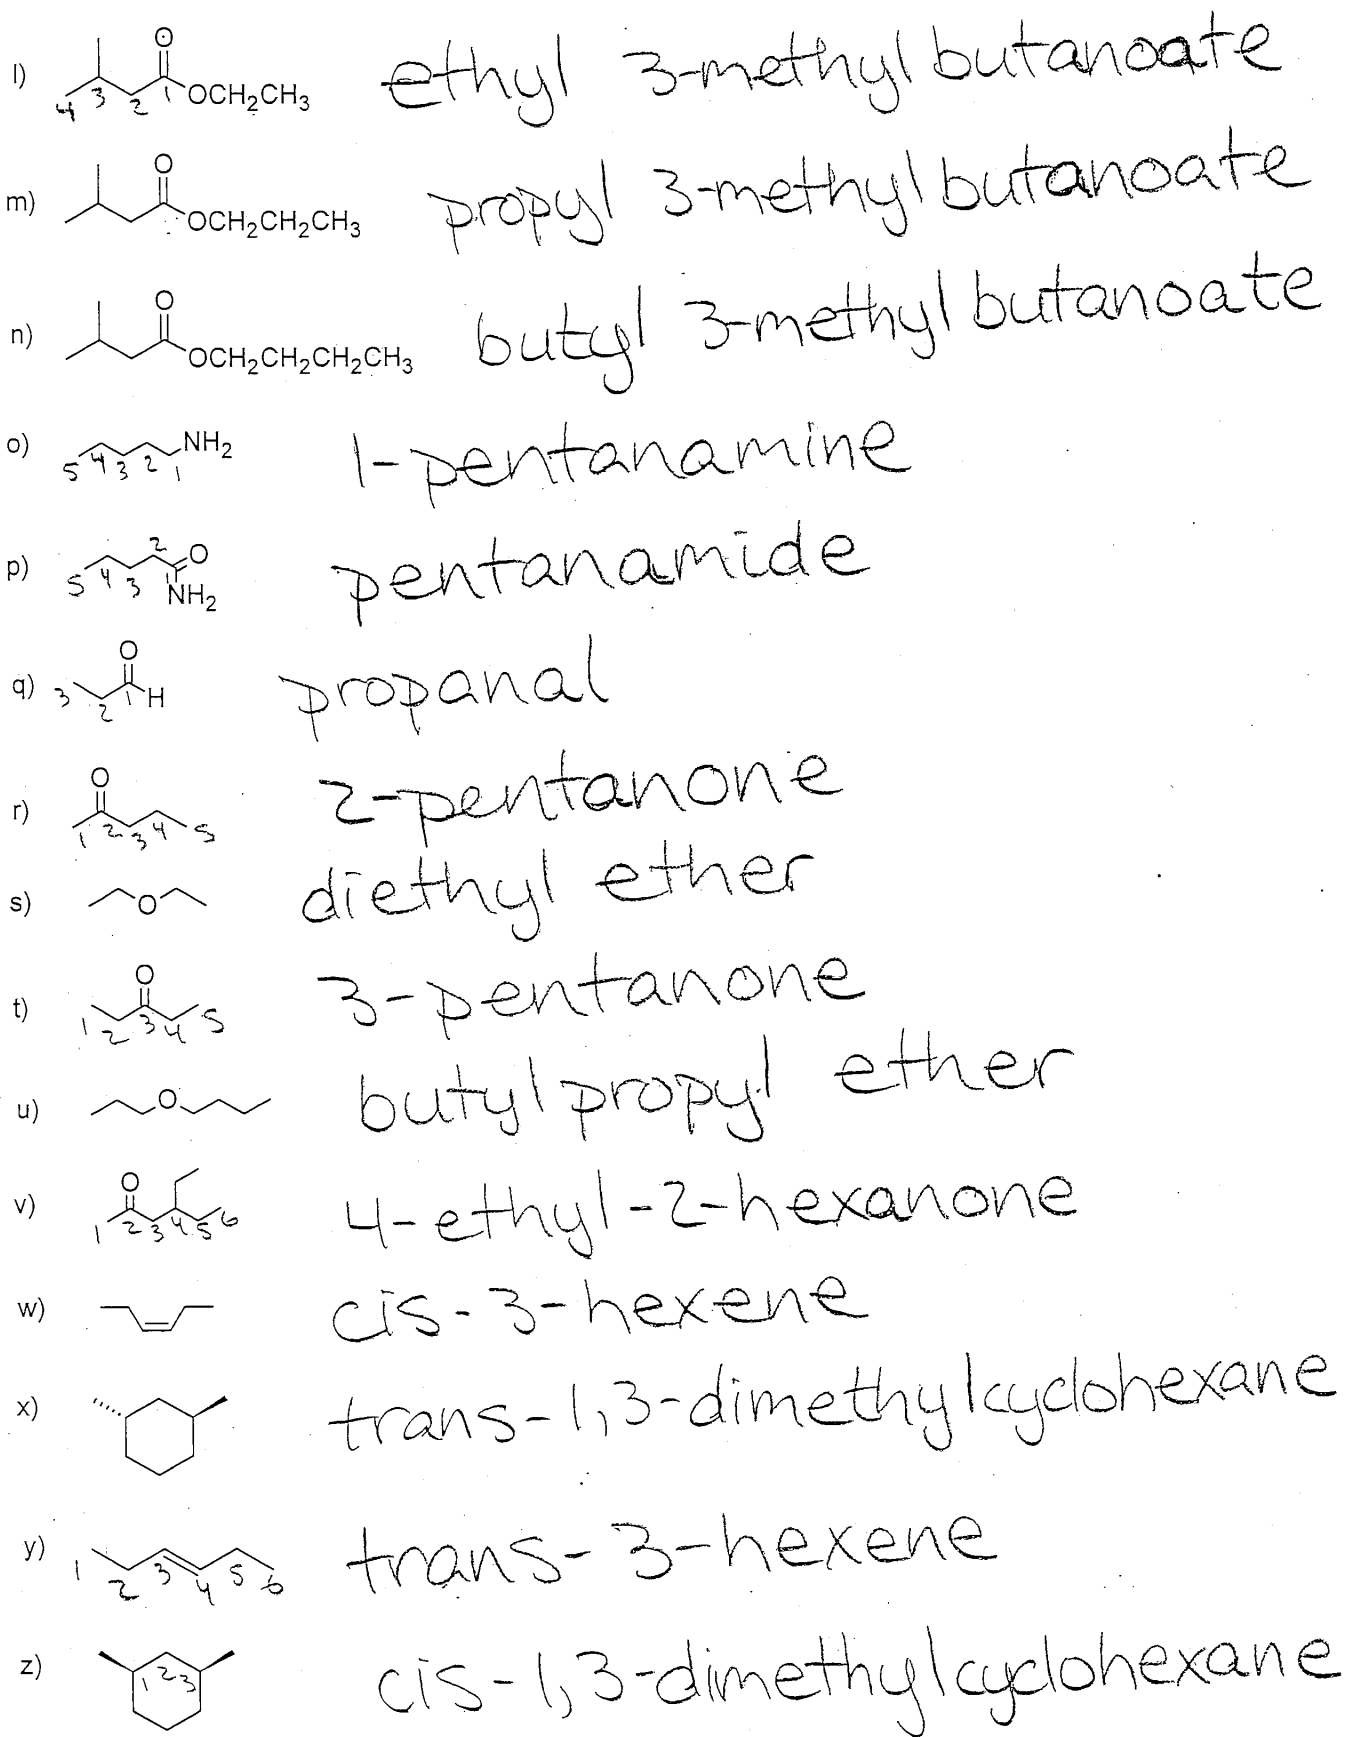 l) O 4 3 2 1 OCH2CH3 ethyl 3-methylbutanoate
m) O OCH2CH2CH3 propyl 3-methylbutanoate
n) O OCH2CH2CH2CH3 butyl 3-methylbutanoate
o) NH2 5 4 3 2 1 1-pentanamine
p) 5 4 3 2 1 O NH2 pentanamide
q) O 3 2 1 H propanal
r) O 1 2 3 4 5 2-pentanone
s) O diethyl ether
t) O 1 2 3 4 5 3-pentanone
u) O butyl propyl ether
v) O 1 2 3 4 5 6 4-ethyl-2-hexanone
w) cis-3-hexene
x) trans-1,3-dimethylcyclohexane
y) 1 2 3 4 5 6 trans-3-hexene
z) 1 2 3 cis-1,3-dimethylcyclohexane